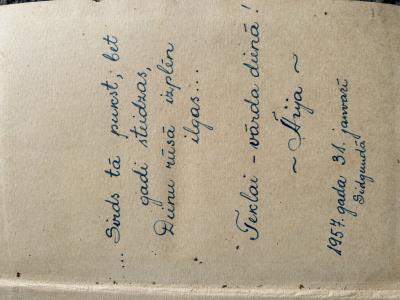 ... Sirds tā pukst, bet
gadi steidzas,
Dunu rūsā izplēn
ilgas...
Teklai - vārda dienā!
~ Ārija ~
1957. gada 31. janvārī
Sidgundā